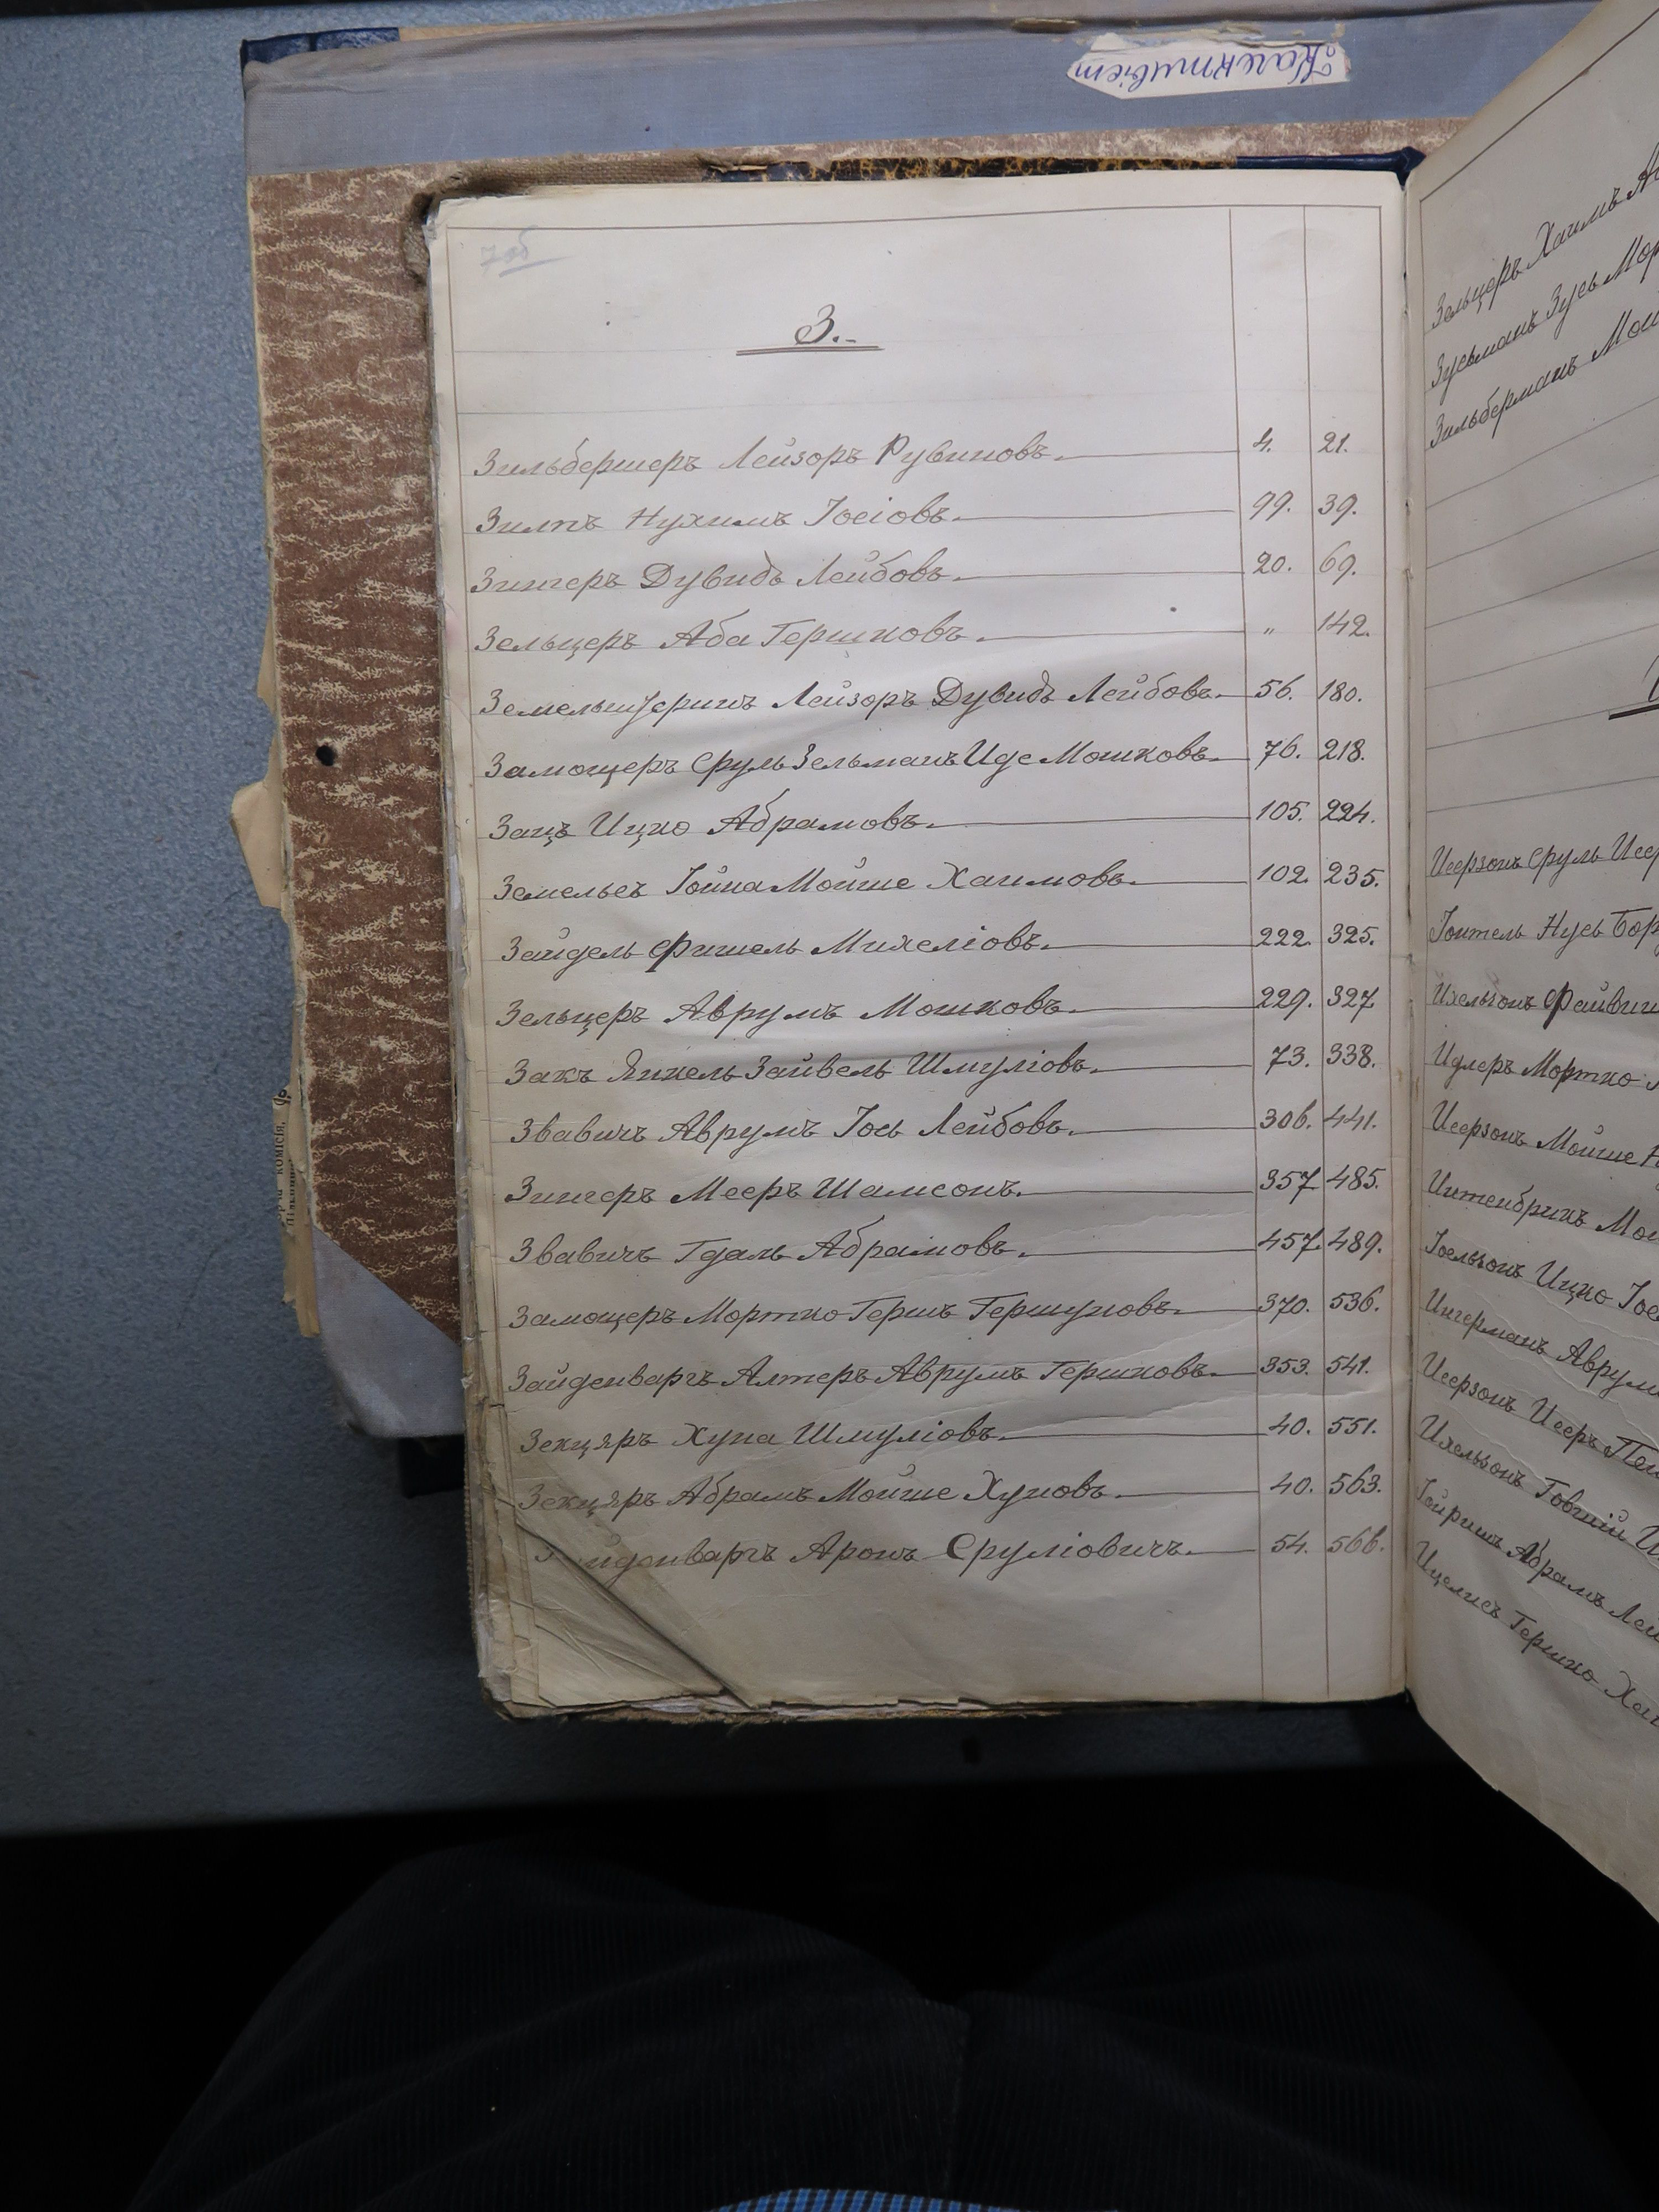 7 об
З.
Зильбершеръ Лейзоръ Рувиновъ. 4. 21.
Зилтъ Нухимъ Іосіовъ. 99. 39.
Зингеръ Дувидъ Лейбовъ. 20. 69.
Зельцеръ Аба Гершковъ. " 142.
Лейзоръ Дувидъ Лейбовъ. 56. 180.
Замощеръ Сруль Зельманъ Иде Мошковъ. 76. 218.
Зацъ Ицко Абрамовъ. 105. 224.
Земельсъ Іойна Мойше Хаимовъ. 102. 235.
Зайдель Фишель Михеліовъ. 222. 325.
Зельцеръ Аврумъ Мошковъ. 229. 327
Закъ Янкель Зайвель Шмуліовъ. 73. 338.
Звавичъ Аврумъ Іось Лейбовъ. 306. 441.
Зингеръ Мееръ Шамсонъ. 357 485.
Звавичъ Гдаль Абрамовъ. 457 489.
Замощеръ Мортко Гершъ Гершуновъ. 370. 536.
Зайденваргъ Алтеръ Аврумъ Гершковъ. 353. 541.
Зекцяръ Хуна Шмуліовъ. 40. 551.
Зекцяръ Абрамъ Мойше Хуновъ. 40. 563.
йденваргъ Аронъ Сруліовичъ. 54. 566.
Зельцеръ Хаимъ
Зусьманъ Зусь
Зильберманъ
Исерзонъ Сруль
Іоитель Нусь
Ихельзонъ
Идлеръ Мортко
Исерзонъ Мойше
Интенбринъ
Іоельзонъ Ицко
Ингерманъ Аврумъ
Исерзонъ Исеръ
Ихельзонъ Товшій
Абрамъ
Ицелисъ Гершко